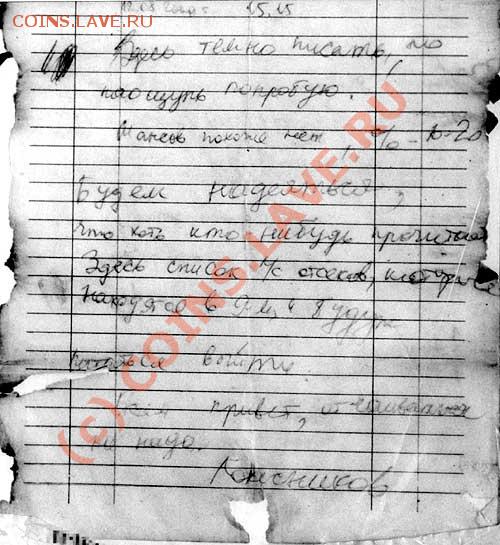 COINS.LAVE.RU
12.08.2000г 15.15
Здесь темно писать, но
наощупь попробую.
Шансов похоже нет, % - 10-20
Будем надеяться,
что хоть кто нибудь прочитает
Здесь список л/с отсеков, которые
находятся в 9-м и будут
пытаться выйти.
Всем привет, отчаиваться
не надо.
Колесников
(c) COINS.LAVE.RU